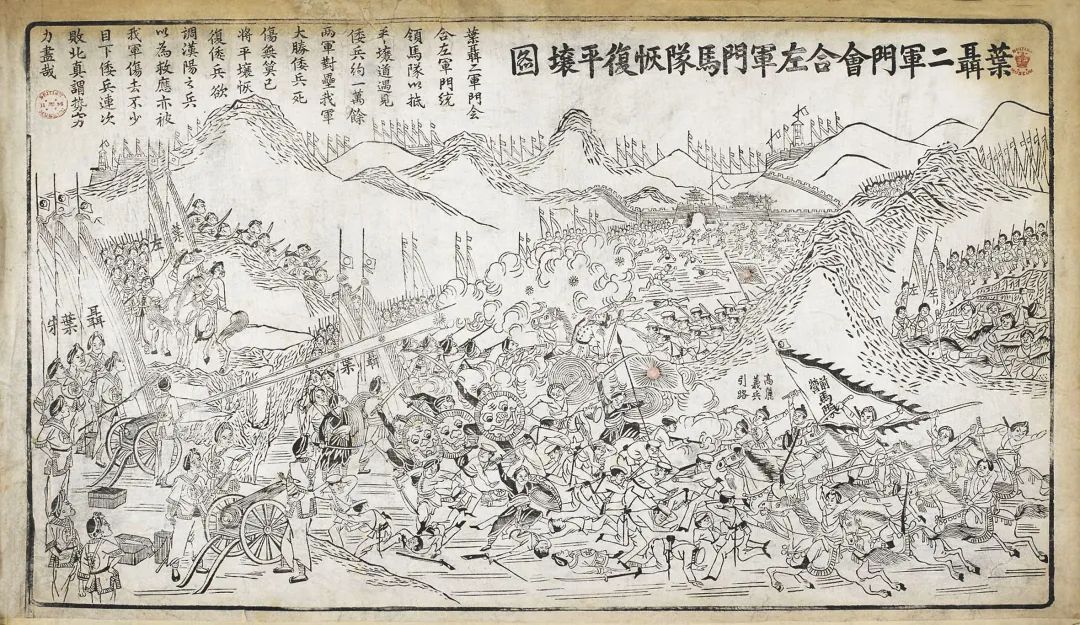 葉聶二軍門會合左軍門馬隊恢復平壤圖
葉聶二軍門会
合左軍門統
領馬隊以抵
平壤道遇見
倭兵約一萬餘
兩軍對壘我軍
大勝倭兵死
傷無筭已
將平壤恢
復倭兵欲
調漢陽之兵
以為救應亦被
我軍傷去不少
目下倭兵連次
敗北真謂势穷
力盡哉
左
高麗
義兵
引路
葉
左
聶
葉
聶
葉